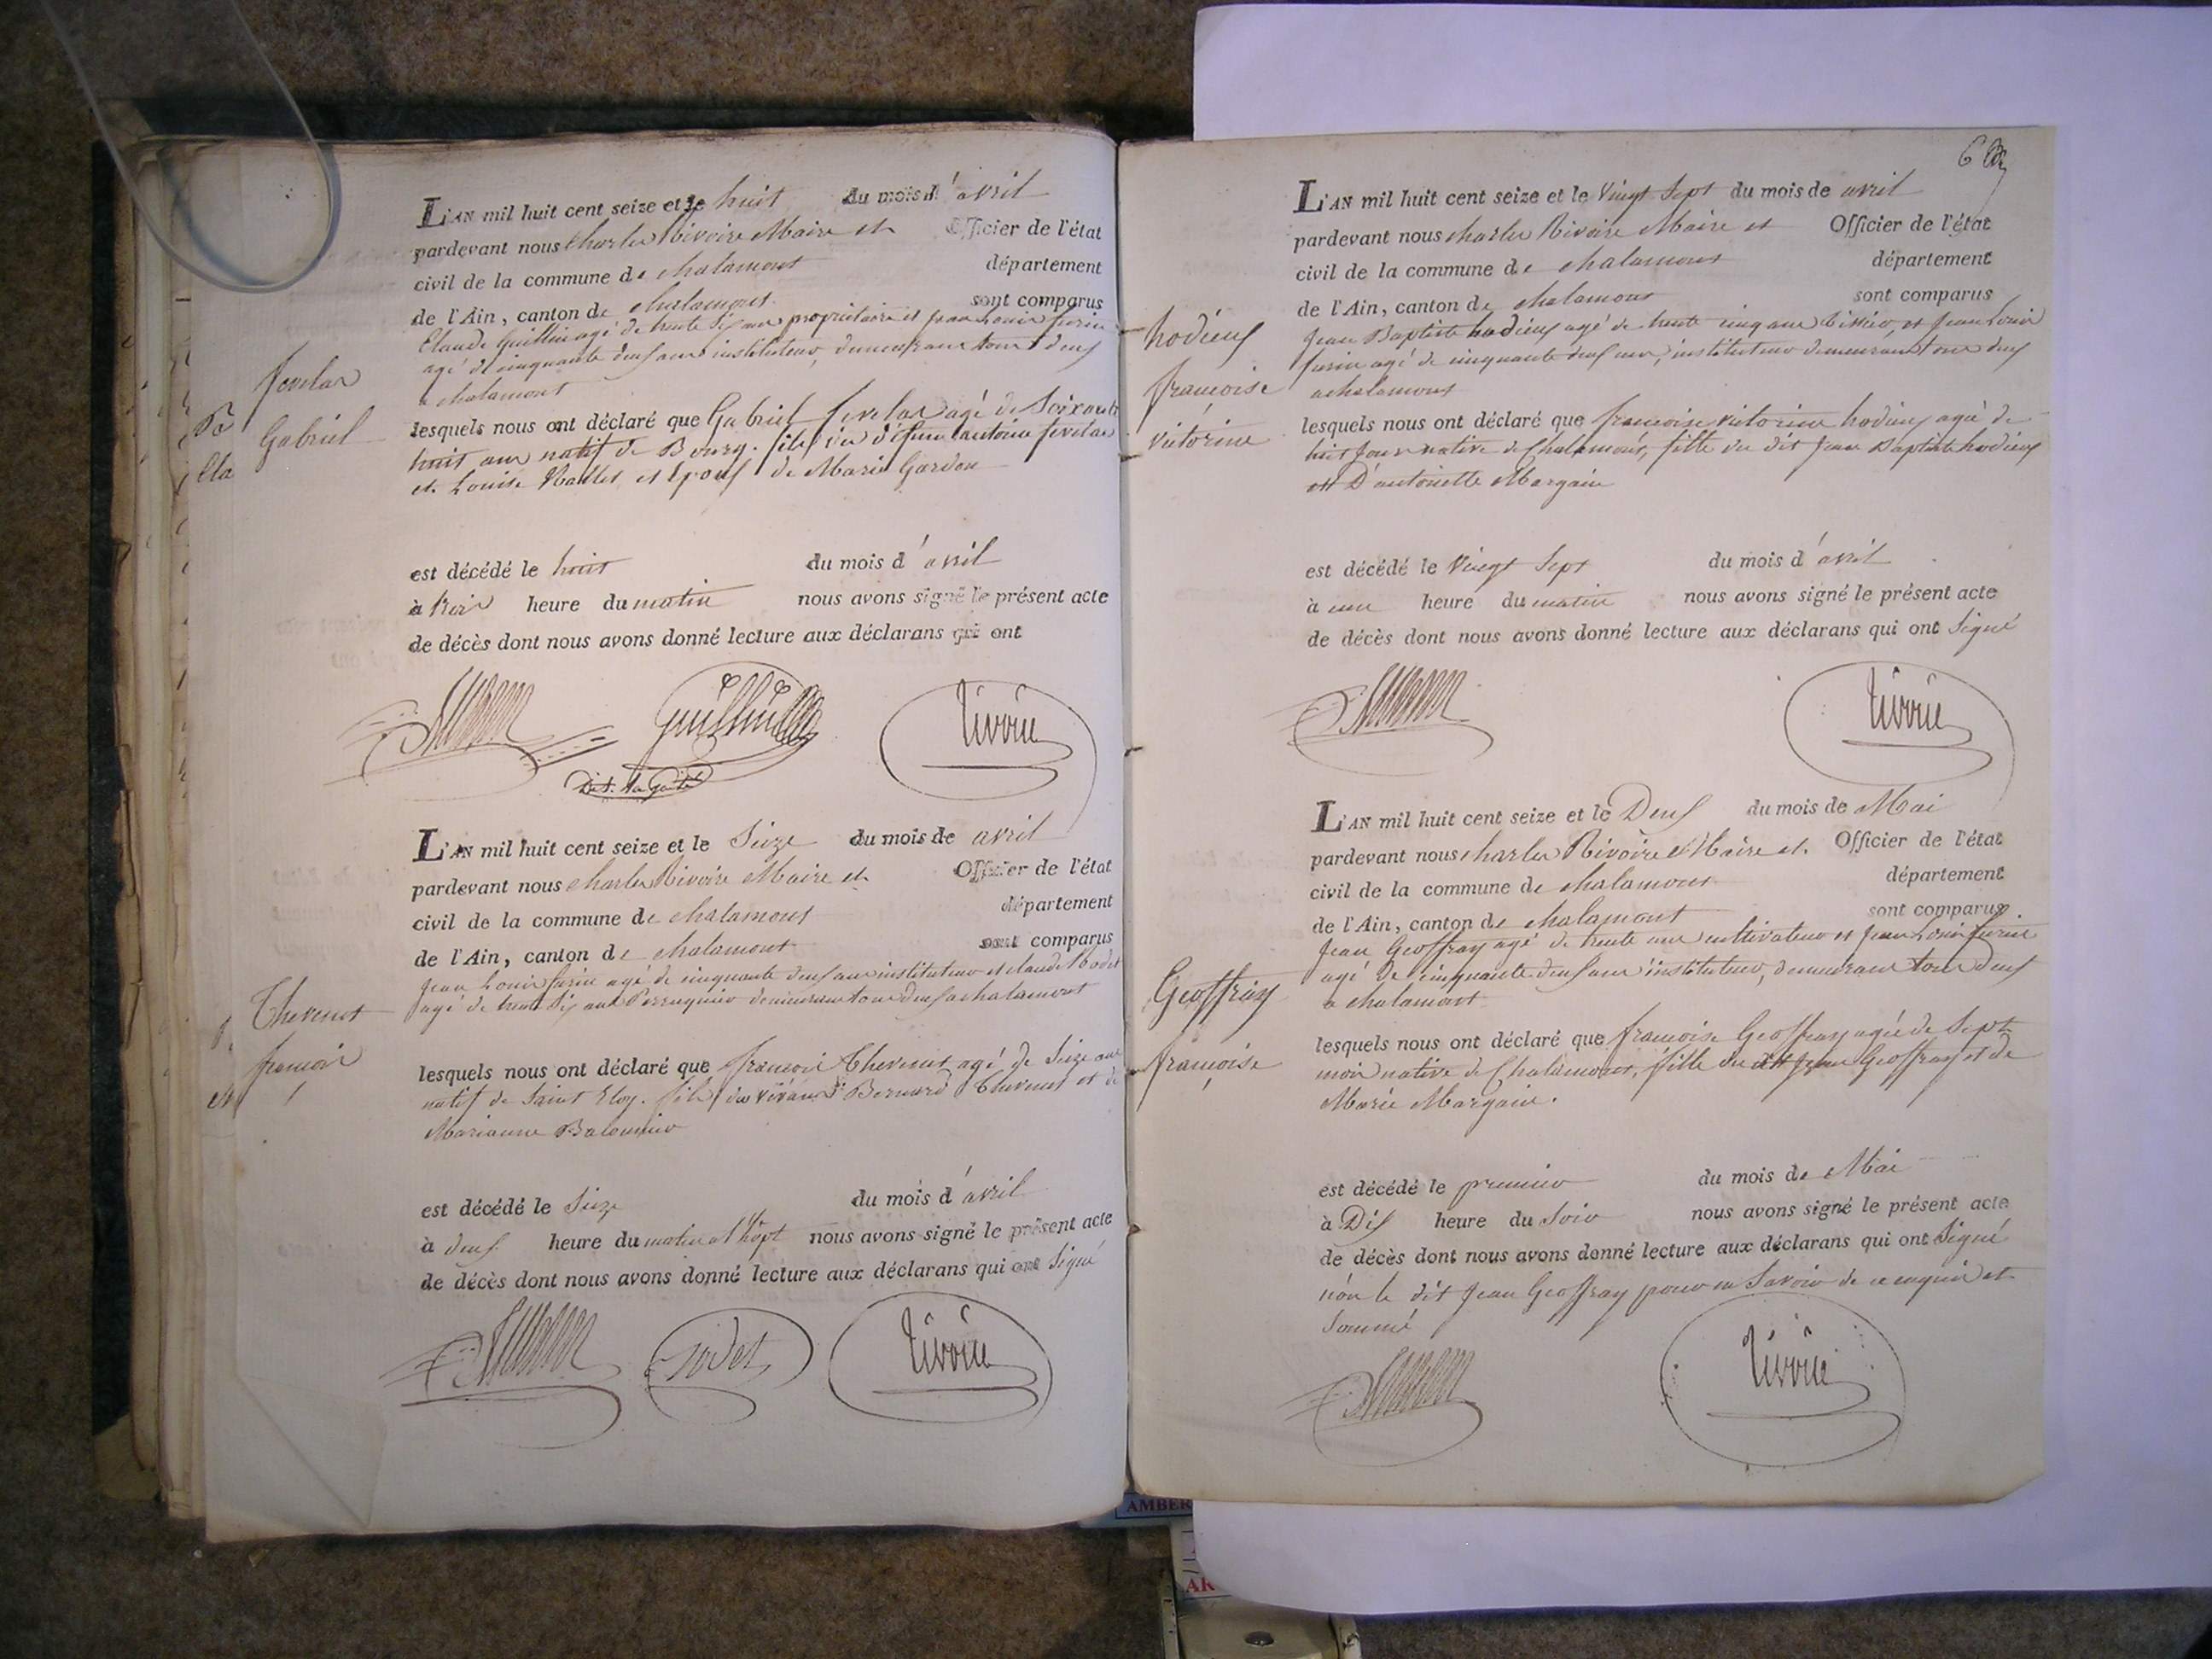 Fevelas
Gabriel
L'AN mil huit cent seize et le huit du mois d'avril
pardevant nous Charles Rivoire Maire et Officier de l'état
civil de la commune de chalamont département
de l'Ain, canton de chalamont sont comparus
Claude Guillin agé de trente six ans propriétaire et jean Louis
agé de cinquante deux ans instituteur, demeurant tous deux
a chalamont
lesquels nous ont déclaré que Gabriel fevelas agé de Soixante
huit ans natif de Bourg. fils de défunt antoine fevelas
et Louise et Epoux de Marie Gardon
est décédé le huit du mois d'avril
à trois heure du matin nous avons signé le présent acte
de décès dont nous avons donné lecture aux déclarans qui ont
Guillin
Dit. la Gaité
rivoire
Thevenet
francois
L'AN mil huit cent seize et le Seize du mois de avril
pardevant nous charles Rivoire Maire et Officier de l'état
civil de la commune de chalamont département
de l'Ain, canton de chalamont sont comparus
jean Louis agé de cinquante deux ans instituteur et claude Rodet
agé de trente six ans Perruquier demeurant tous deux a chalamont
lesquels nous ont déclaré que francois Thevenet agé de Seize ans
natif de Saint Eloy. fils des vivans Bernard Thevenet et de
Marianne
est décédé le Seize du mois d'avril
à deux heure du matin nous avons signé le présent acte
de décès dont nous avons donné lecture aux déclarans qui ont Signé
rodet
rivoire
6
hodieux
francoise
victorine
L'AN mil huit cent seize et le Vingt Sept du mois de avril
pardevant nous charles Rivoire Maire et Officier de l'état
civil de la commune de chalamont département
de l'Ain, canton de chalamont sont comparus
Jean Baptiste hodieux agé de trente cinq ans tissier, et Jean Louis
agé de cinquante deux ans, instituteur demeurant tous deux
a chalamont
lesquels nous ont déclaré que francoise victorine hodieux agée de
huit jours native de Chalamont, fille du dit Jean Baptiste hodieux
et D'antoinette Margain
est décédé le Vingt Sept du mois d'avril
à une heure du matin nous avons signé le présent acte
de décès dont nous avons donné lecture aux déclarans qui ont Signé
rivoire
Geoffray
françoise
L'AN mil huit cent seize et le Deux du mois de Mai
pardevant nous charles Rivoire Maire et Officier de l'état
civil de la commune de chalamont département
de l'Ain, canton de chalamont sont comparus
Jean Geoffray agé de trente ans cultivateur et jean Louis
agé de cinquante deux ans instituteur, demeurant tous deux
a chalamont
lesquels nous ont déclaré que francoise Geoffray agée de Sept
mois native de Chalamont, fille du dit Jean Geoffray et de
Marie Margain.
est décédé le premier du mois de Mai
à Dix heure du Soir nous avons signé le présent acte
de décès dont nous avons donné lecture aux déclarans qui ont Signé
non le dit Jean Geoffray pour ne Savoir de ce enquis et
Sommé
rivoire
AMBER
AR